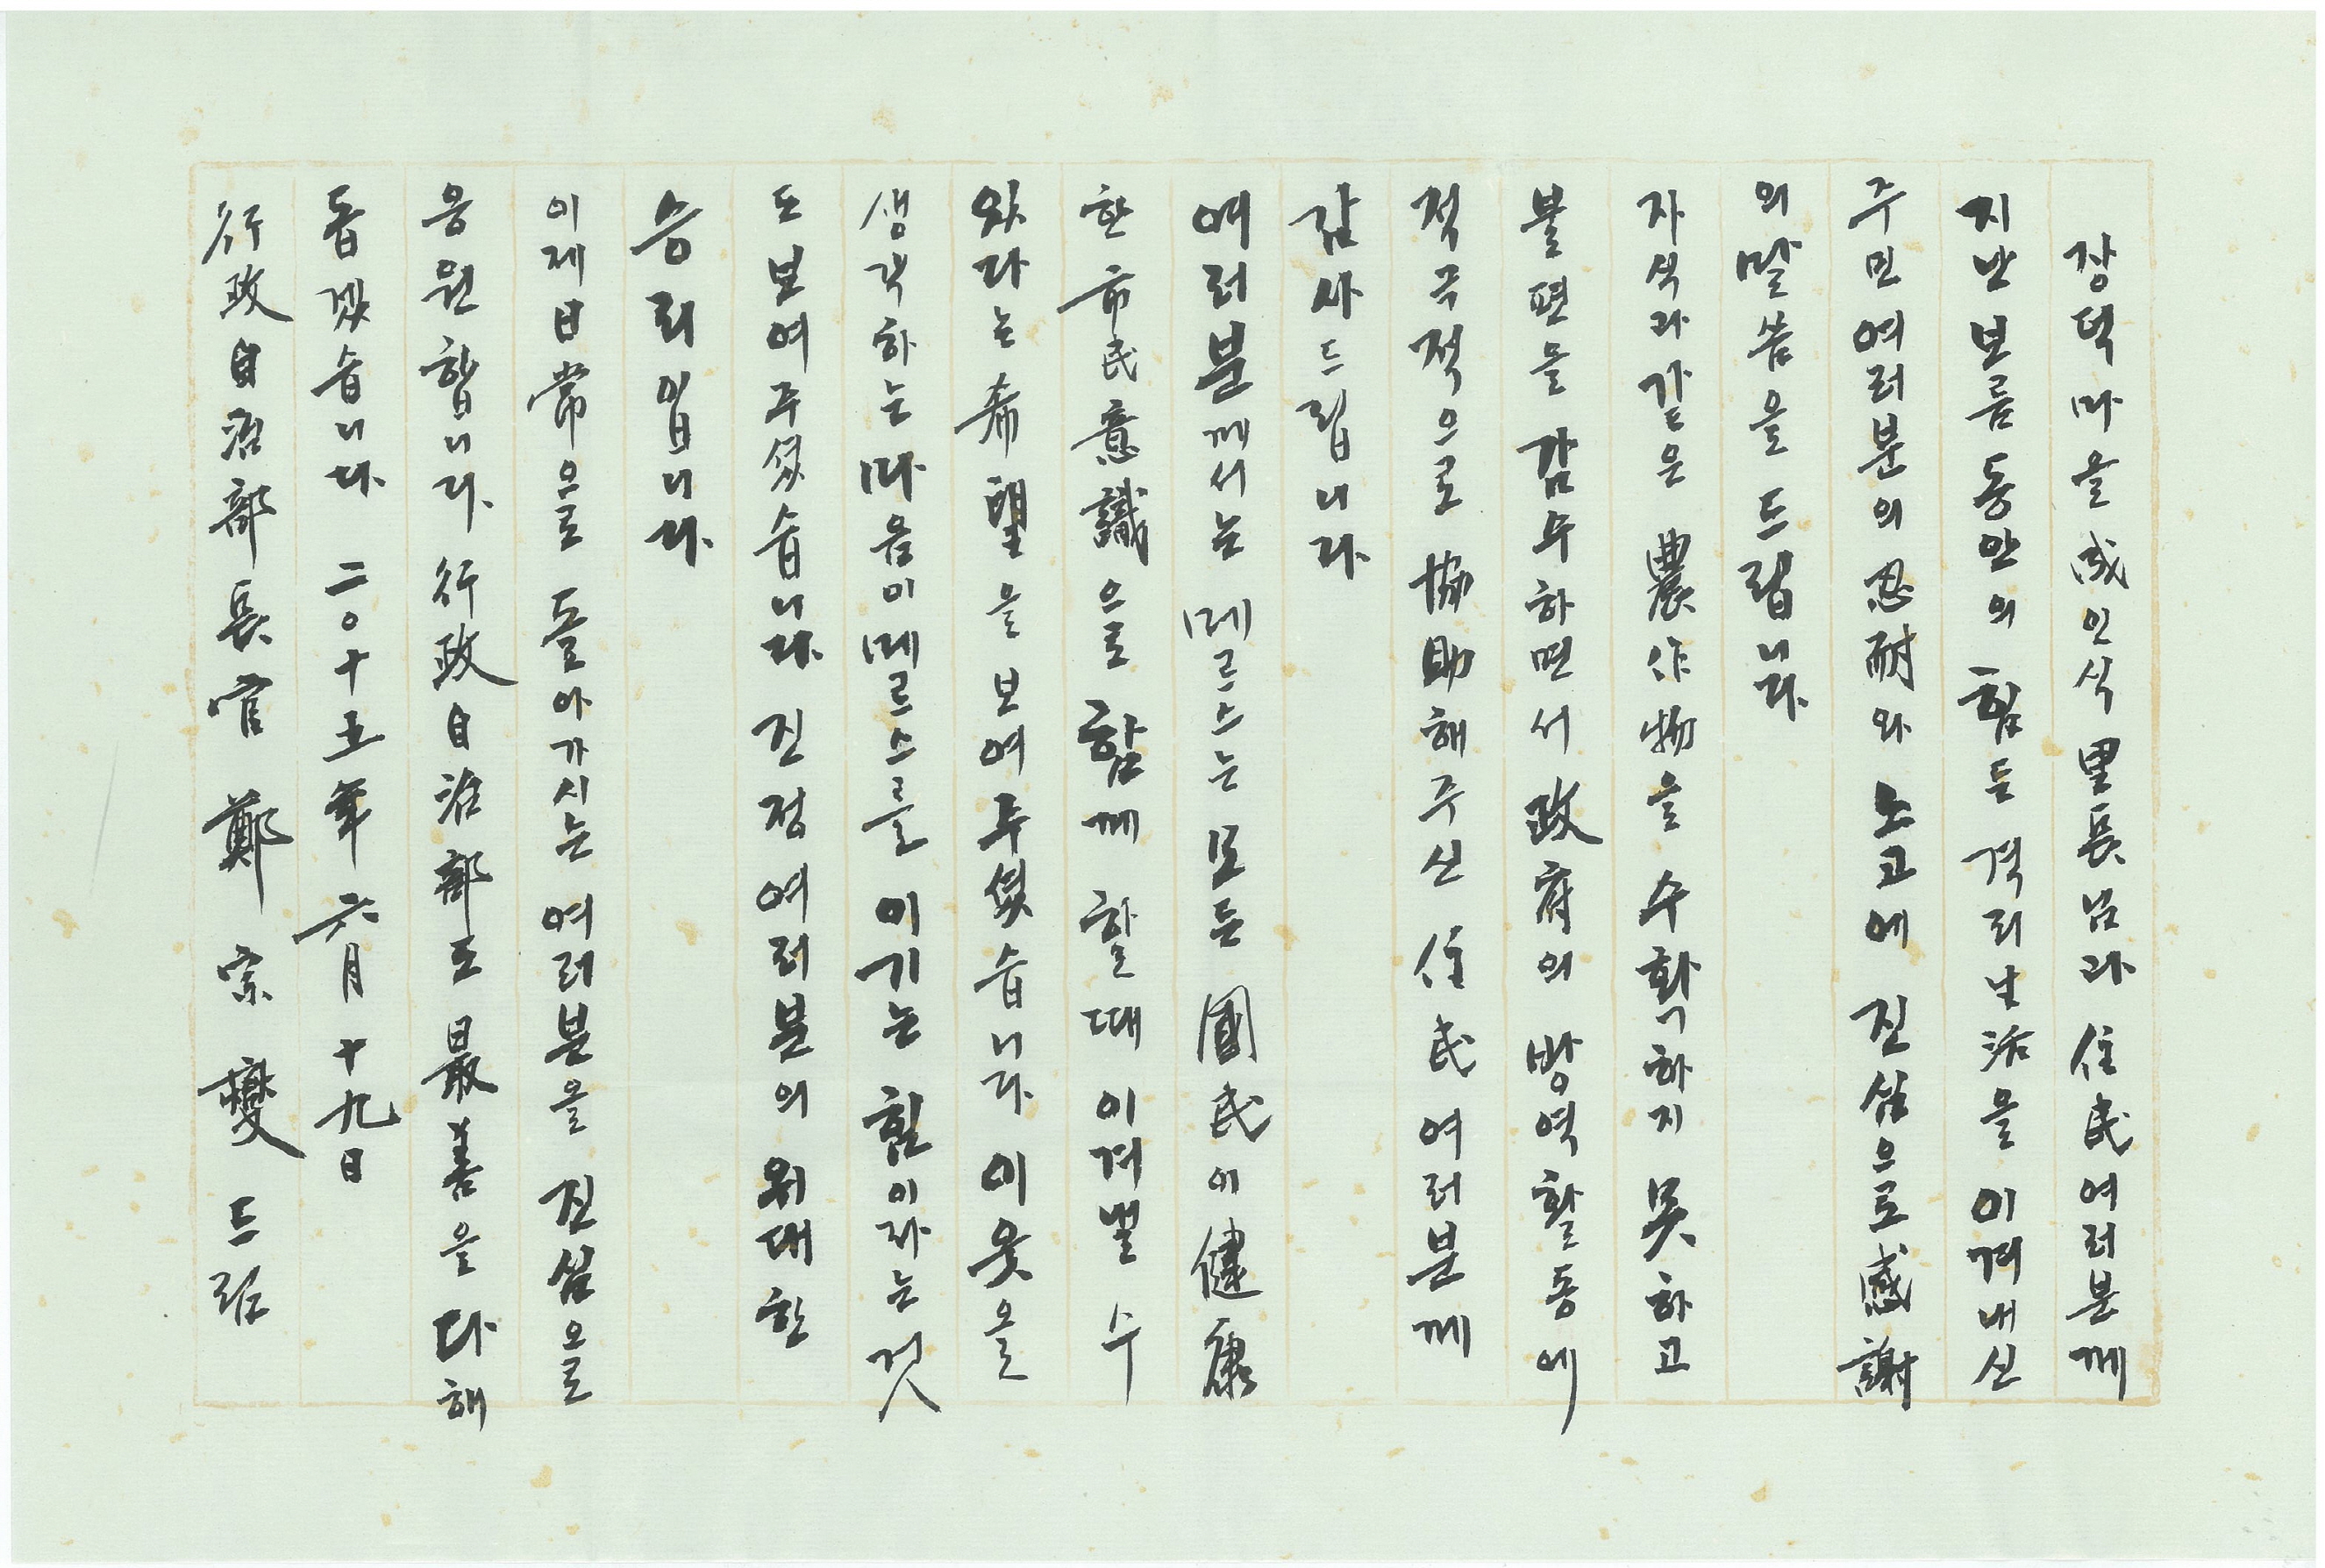 장덕마을 成인식 里長님과 住民여러분께
지난 보름 동안의 힘든 격리生活을 이겨내신
주민 여러분의 忍耐와 노고에 진심으로 感謝
의 말씀을 드립니다.
자식과 같은 農作物을 수확하지 못하고
불편을 감수하면서 政府의 방역활동에
적극적으로 協助해주신 住民 여러분께
감사드립니다.
여러분께서는 메르스는 모든 國民이 健康
한 市民意識으로 함께 할 때 이겨낼 수
있다는 希望을 보여주셨습니다. 이웃을
생각하는 마음이 메르스를 이기는 힘이라는 것
도 보여주셨습니다. 진정 여러분의 위대한
승리입니다.
이제 日常으로 돌아가시는 여러분을 진심으로
응원합니다. 行政自治部도 最善을 다해
돕겠습니다. 二〇十五年 六月 十九日
行政自治部長官 鄭宗燮 드림